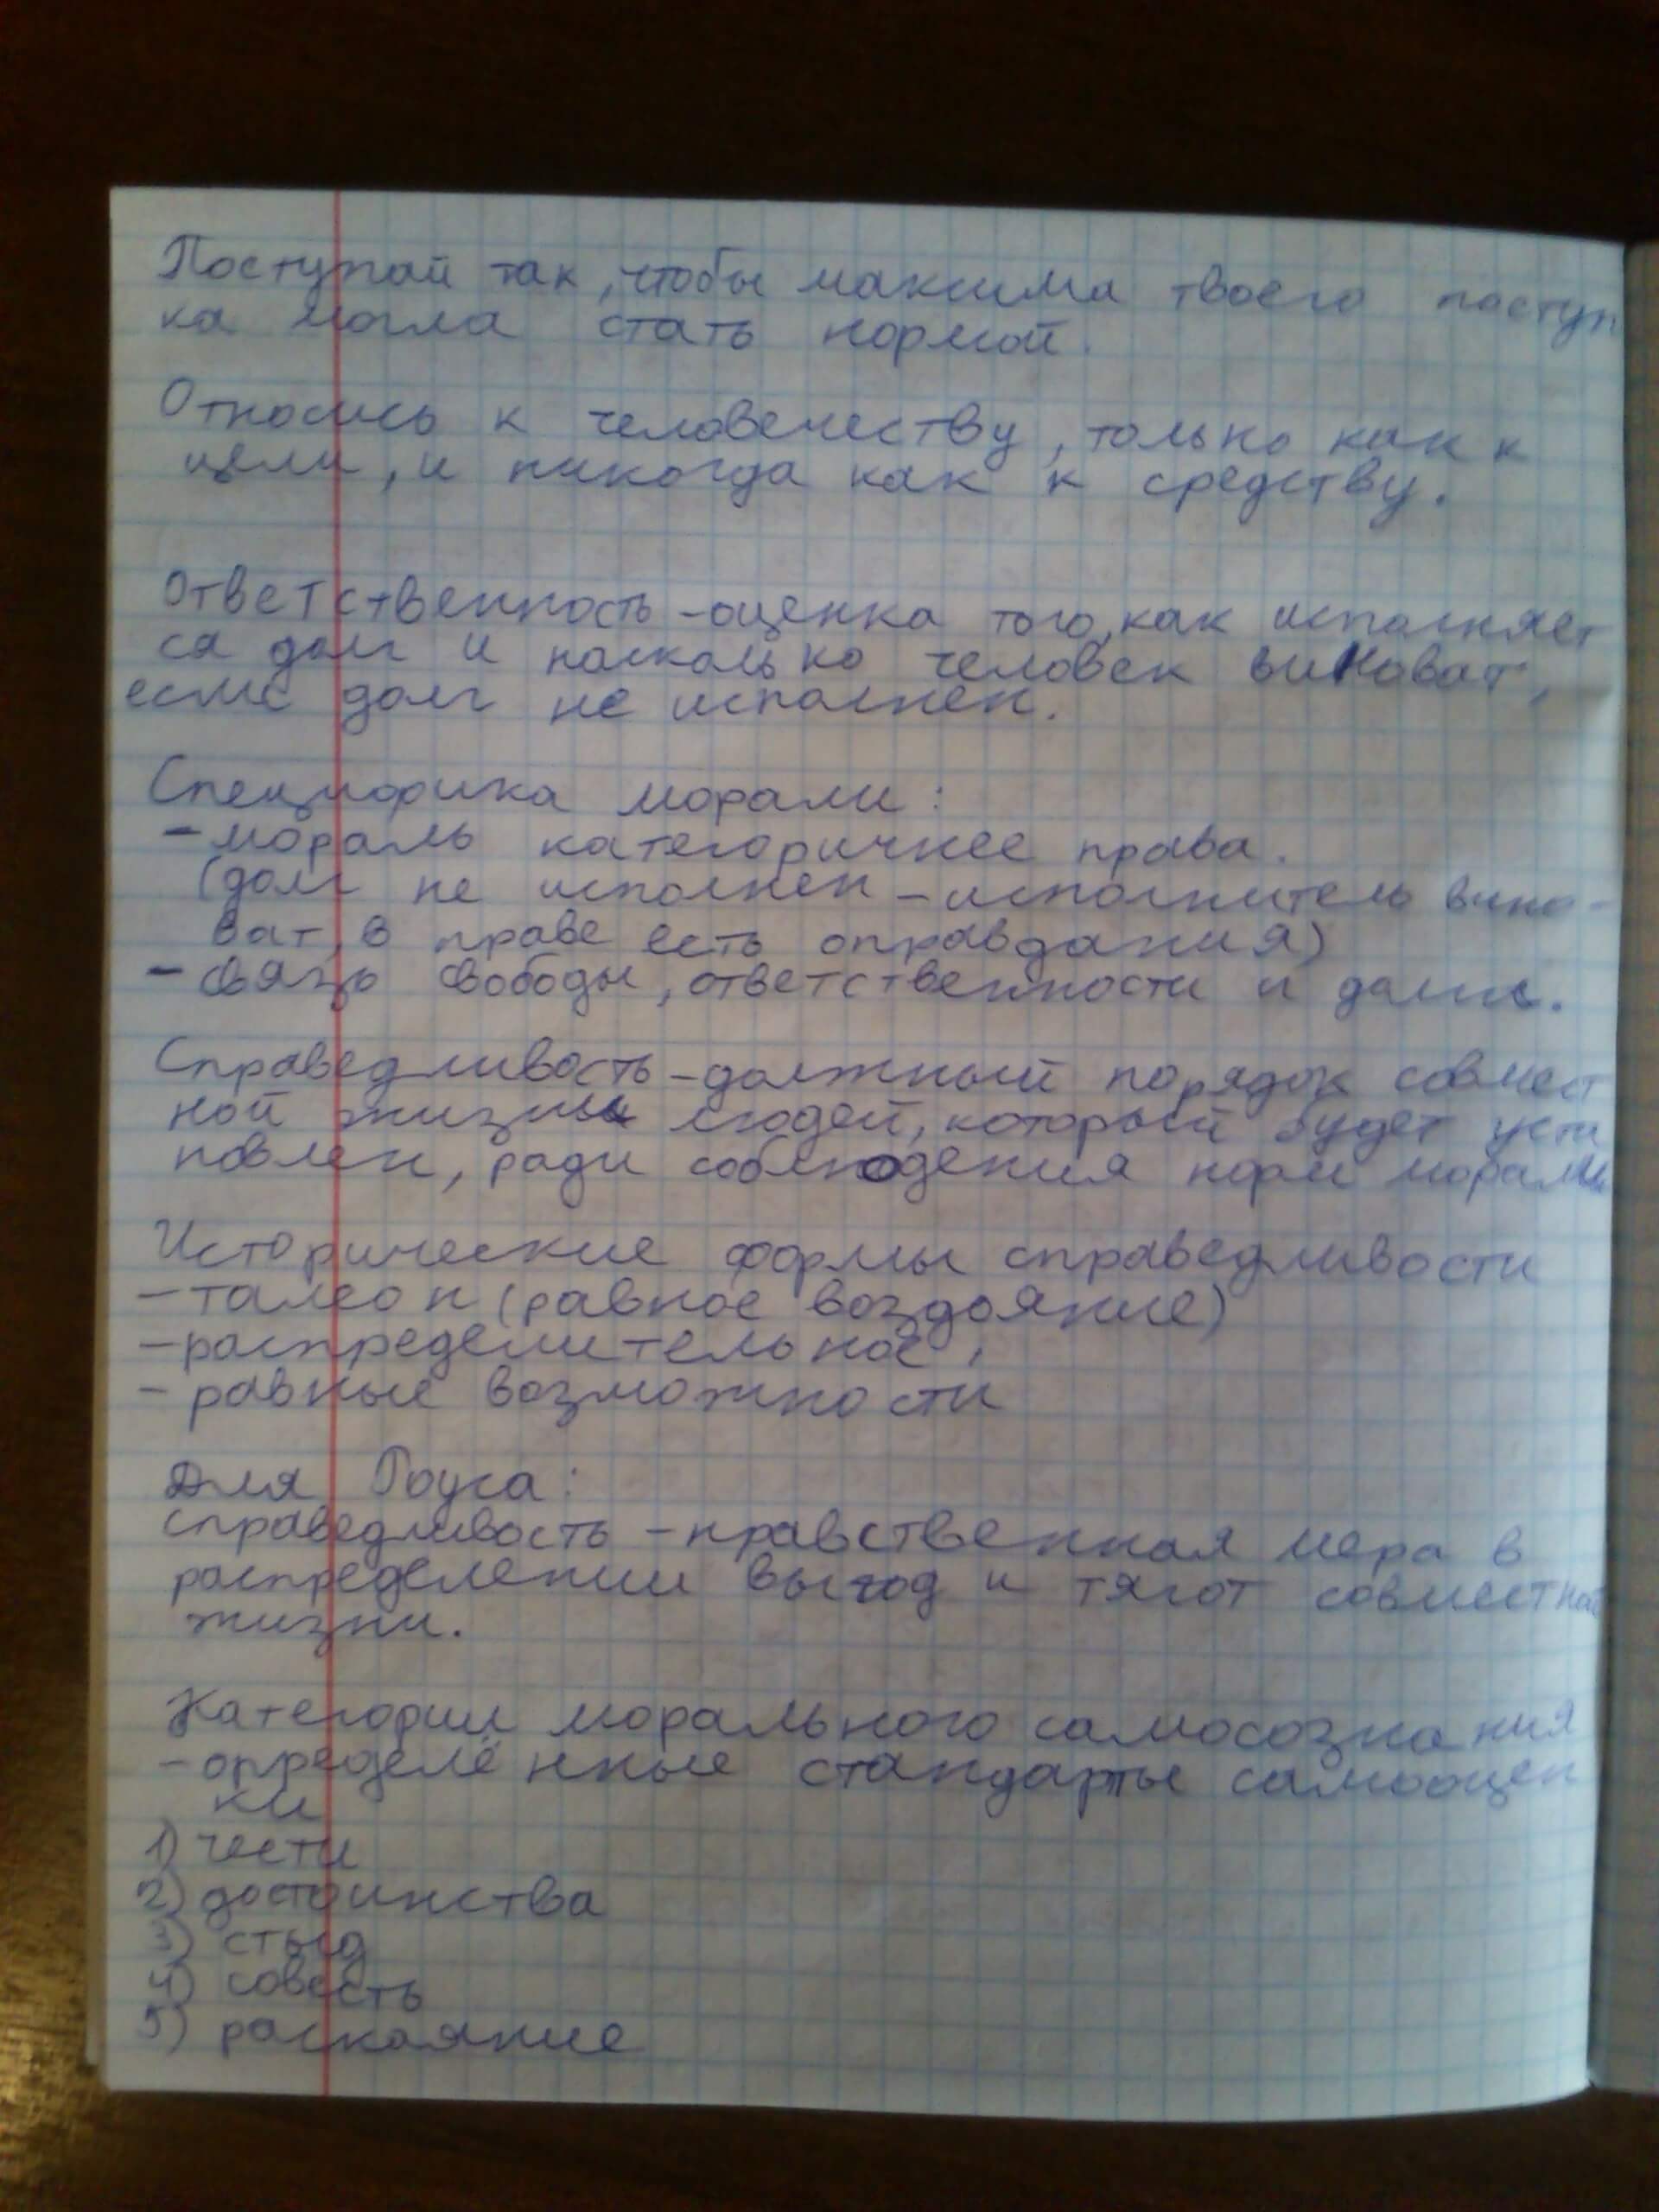 Поступай так, чтобы максима твоего поступ
ка могла стать нормой.
Относись к человечеству, только как к
цели, и никогда как к средству.
Ответственность - оценка того, как исполняет
ся долг и насколько человек виноват,
если долг не исполнен.
Специфика морали:
- мораль категоричнее права.
(долг не исполнен - исполнитель вино-
ват, в праве есть оправдания)
- связь свободы, ответственности и долга.
Справедливость - должный порядок совмест
ной жизни людей, который будет уста
новлен, ради соблюдения норм морали
Исторические формы справедливости
- талеон (равное воздаяние)
- распределительное,
- равные возможности
Для Роуса:
справедливость - нравственная мера в
распределении выгод и тягот совместной
жизни.
Категории морального самосознания
- определённые стандарты самооцен
ки
1) чести
2) достоинства
3) стыд
4) совесть
5) раскаяние